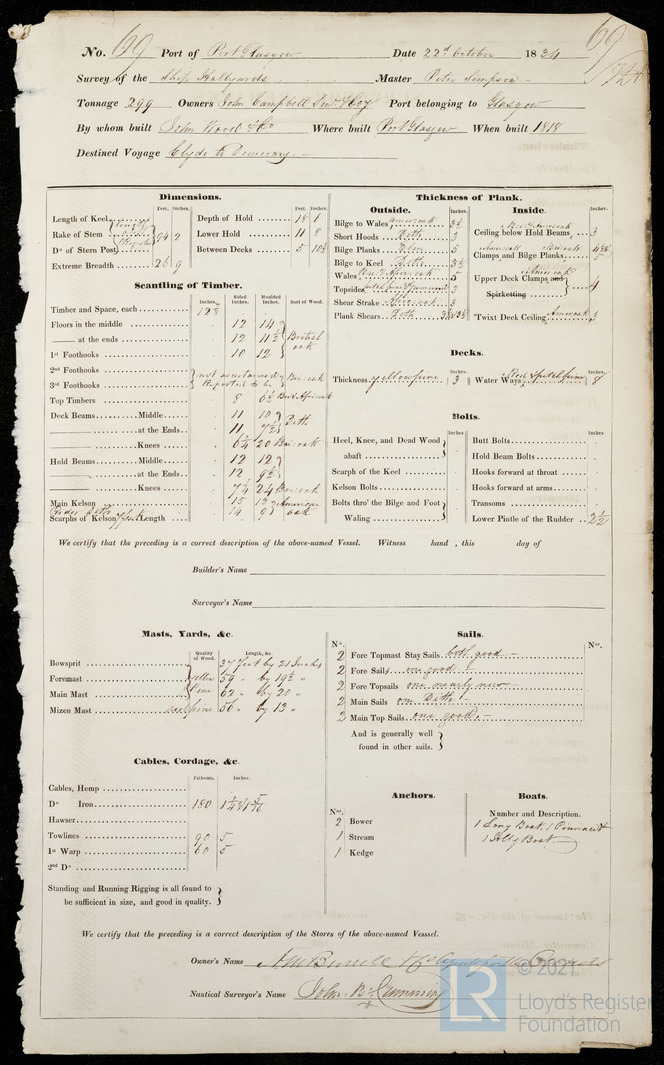 No. 69 Port of Port Glasgow Date 22d October 1834
69
Survey of the Ship Hallyards Master Peter Simpson
Tonnage 299 Owners John Campbell Senr & Coy Port belonging to Glasgow
By whom built John Wood & Co Where built Port Glasgow When built 1818
Destined Voyage Clyde to Demerary
Dimensions.
Feet. Inches.
Length of Keel
Rake of Stem 94 2
Do of Stern Post
Extreme Breadth 26 9
Feet. Inches.
Depth of Hold 18 1
Lower Hold 11 8
Between Decks 5 10½
Scantling of Timber.
Inches. Sided Inches. Moulded Inches. Sort of Wood.
Timber and Space, each
Floors in the middle 12 14
— at the ends 12 11½ British oak
1st Foothooks 10 12
2nd Foothooks not ascertained
3rd Foothooks Reported to be
Top Timbers 8 6½
Deck Beams Middle 11 10
— at the Ends 11 7½ Ditto
— Knees 6½ 20
Hold Beams Middle 12 12
— at the Ends 12 9½
— Knees 7½ 24
Main Kelson 15 13 American
Scarphs of Kelson Length 14 9 oak
Thickness of Plank.
Outside. Inches.
Bilge to Wales Am oak 3½
Short Hoods Ditto 3
Bilge Planks Elm 5
Bilge to Keel Ditto 3½
Wales 5
Topsides 3
Shear Strake 3
Plank Shears Ditto
Inside. Inches.
Ceiling below Hold Beams 3
Clamps and Bilge Planks 5
Upper Deck Clamps and
Spirketting 4
'Twixt Deck Ceiling Am oak 3
Decks.
Thickness yellow pine 3 Water Ways 8
Bolts.
Inches
Heel, Knee, and Dead Wood
abaft
Scarph of the Keel
Kelson Bolts
Bolts thro' the Bilge and Foot
Waling
Inches
Butt Bolts
Hold Beam Bolts
Hooks forward at throat
Hooks forward at arms
Transoms
Lower Pintle of the Rudder 2½
We certify that the preceding is a correct description of the above-named Vessel. Witness hand, this day of
Builder's Name
Surveyor's Name
Masts, Yards, &c.
Quality of Wood. Length, &c.
Bowsprit 37 feet by 21 Inches
Foremast yellow 59 " by 19½ "
Main Mast Pine 62 " by 20 "
Mizen Mast 56 " by 13 "
Sails.
No. Nos.
2 Fore Topmast Stay Sails both good
2 Fore Sails one good
2 Fore Topsails one nearly new
2 Main Sails one Ditto
2 Main Top Sails one good
And is generally well
found in other sails.
Cables, Cordage, &c.
Fathoms. Inches.
Cables, Hemp
Do Iron 180
Hawser
Towlines 90 5
1st Warp 60 5
2nd Do
Standing and Running Rigging is all found to
be sufficient in size, and good in quality.
Anchors.
Nos.
2 Bower
1 Stream
1 Kedge
Boats.
Number and Description.
1 Long Boat, 1 Pinnace &
1 Jolly Boat
We certify that the preceding is a correct description of the Stores of the above-named Vesssel.
Owner's Name
Nautical Surveyor's Name John B Cumming
© 2021
LR
Lloyd's Register
Foundation